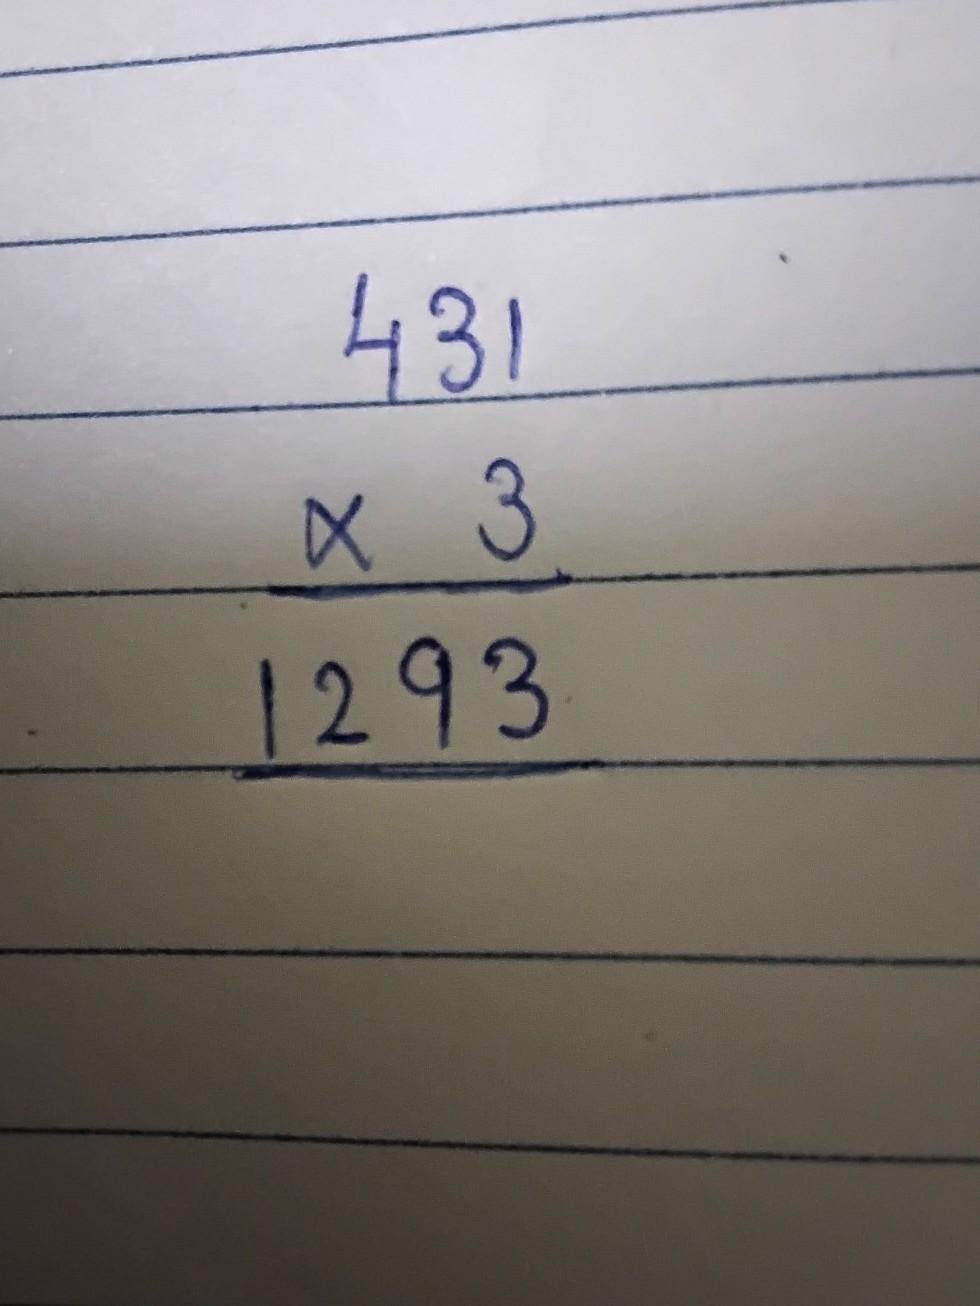 431
x 3
1293